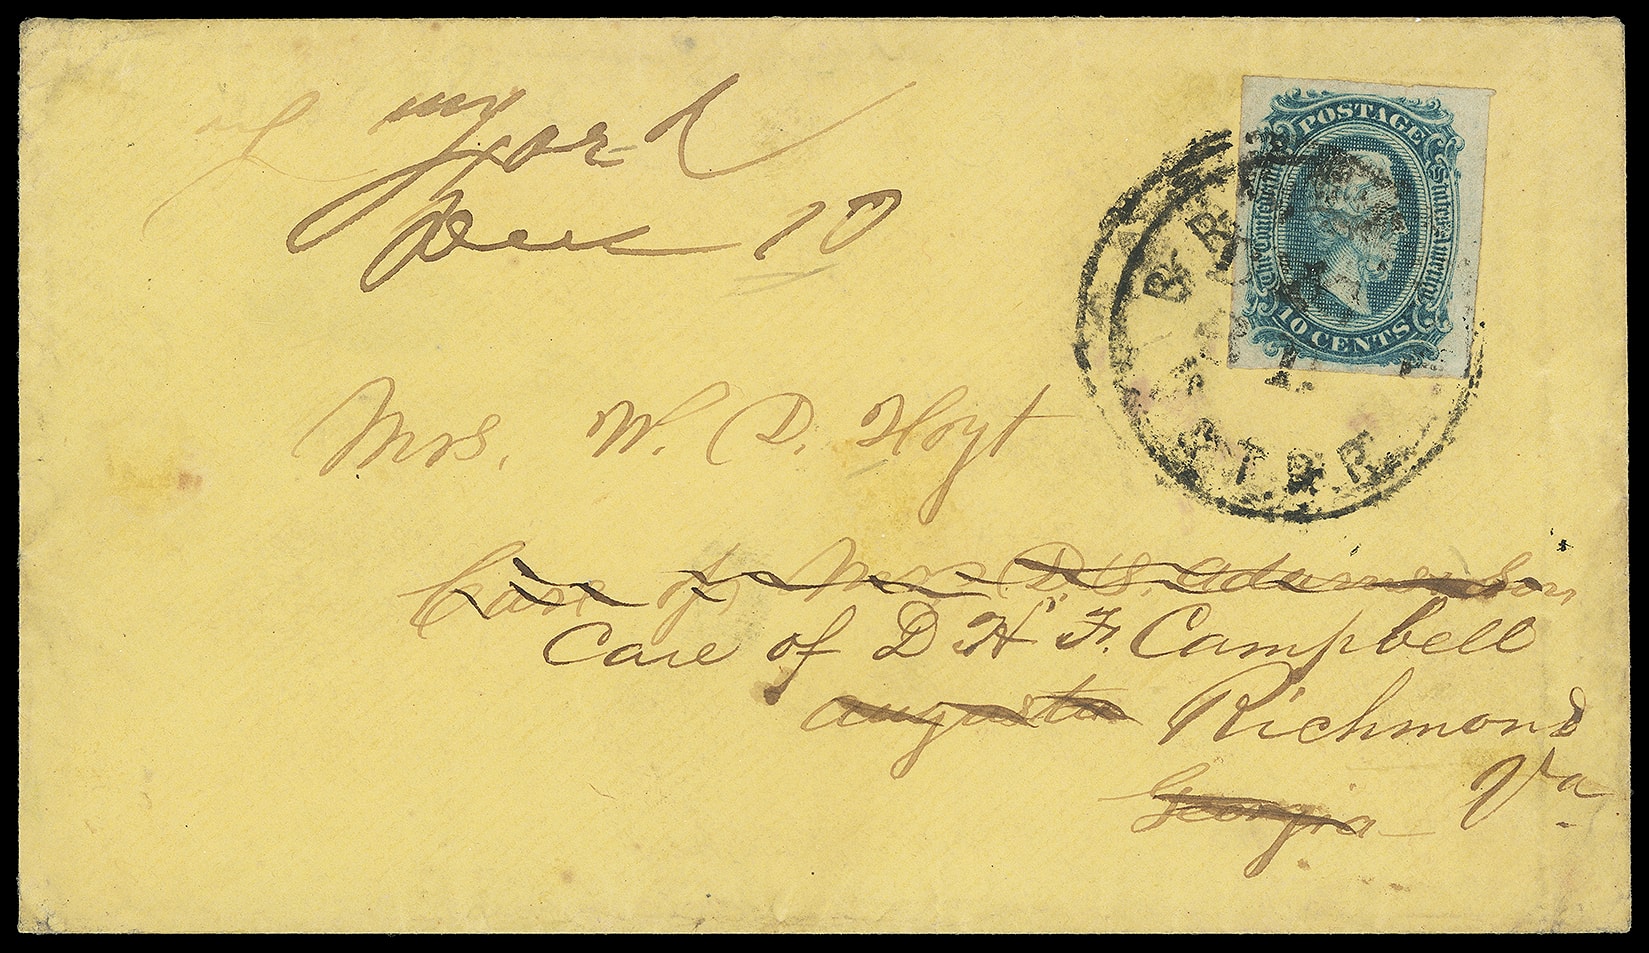 Due 10
POSTAGE
The Confederate States of America
10 CENTS
1
Mrs. W. D. Hoyt
Care of Mrs D. S. Adamson
Care of D H F. Campbell
Augusta Richmond
Georgia Va.